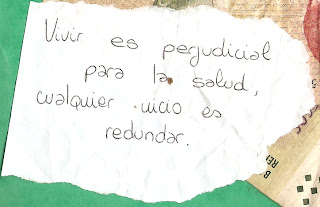 Vivir es perjudicial
para la salud,
cualquier vicio es
redundar.